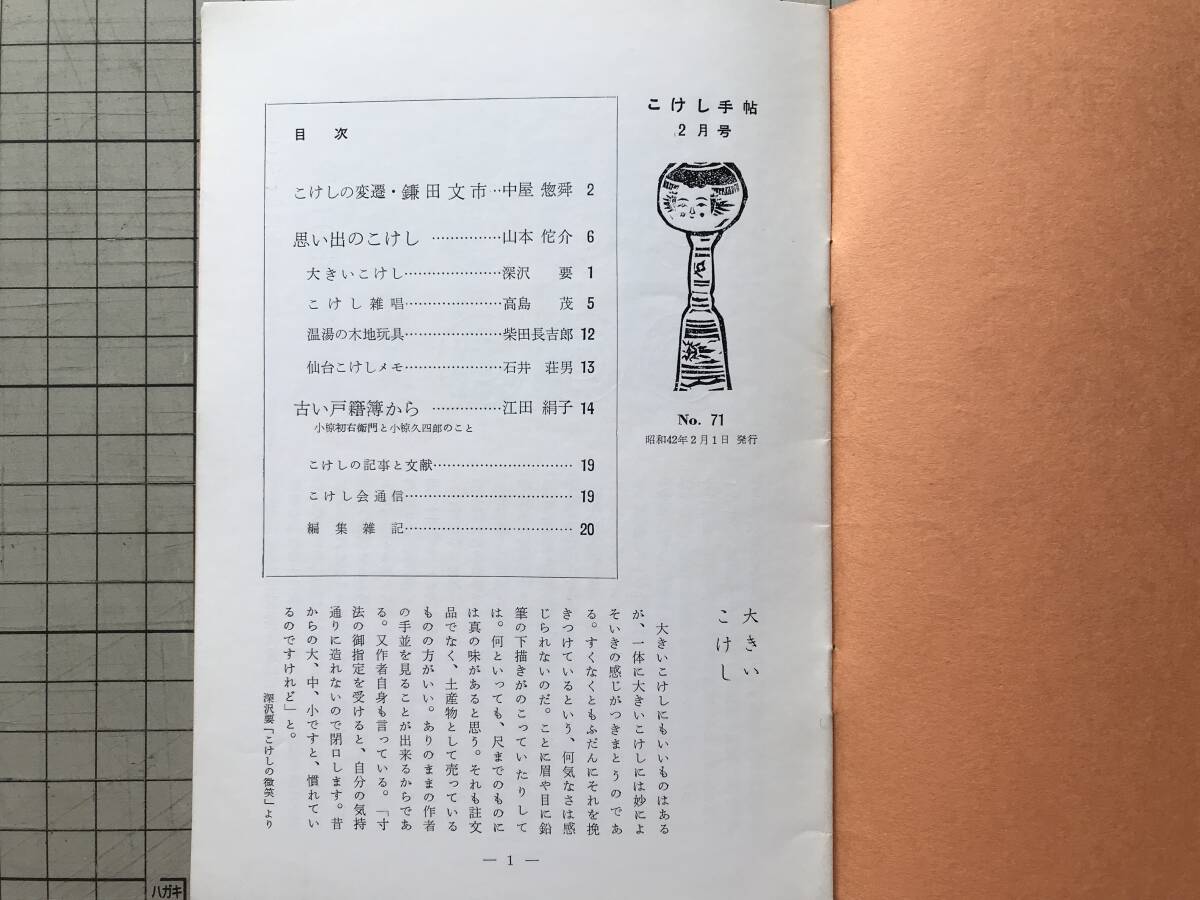 こけし手帖
2月号
No. 71
昭和42年2月1日 発行
目次
こけしの変遷・鎌田文市‥中屋 惣舜 2
思い出のこけし ……………山本 侘介 6
大きいこけし…………………深沢 要 1
こけし雑唱…………………高島 茂 5
温湯の木地玩具…………………柴田長吉郎 12
仙台こけしメモ…………………石井 荘男 13
古い戸籍簿から ……………江田 絹子 14
小椋初右衛門と小椋久四郎のこと
こけしの記事と文献………………………… 19
こけし会通信……………………………… 19
編集雑記……………………………… 20
大きい
こけし
大きいこけしにもいいものはある
が、一体に大きいこけしには妙によ
そいきの感じがつきまとうのであ
る。すくなくともふだんにそれを挽
きつけているという、何気なさは感
じられないのだ。ことに眉や目に鉛
筆の下描きがのこっていたりして
は。何といっても、尺までのものに
は真の味があると思う。それも註文
品でなく、土産物として売っている
ものの方がいい。ありのままの作者
の手並を見ることが出来るからであ
る。又作者自身も言っている。「寸
法の御指定を受けると、自分の気持
通りに造れないので閉口します。昔
からの大、中、小ですと、慣れてい
るのですけれど」と。
深沢要「こけしの微笑」より
— 1 —
ハガキ